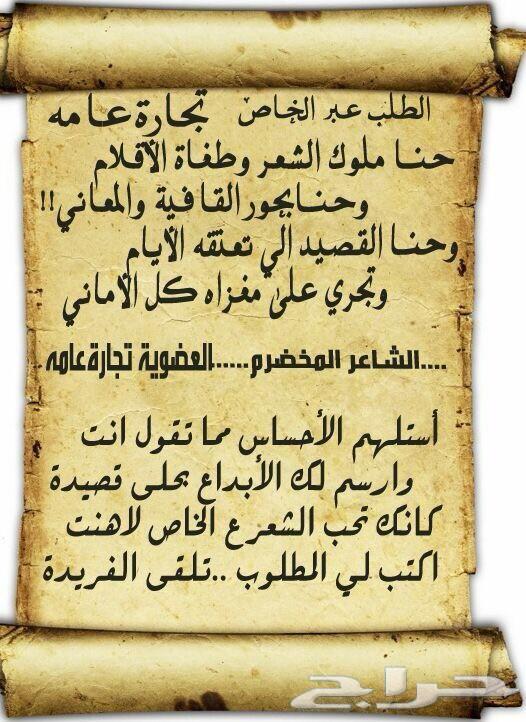 الطلب عبر الخاص تجارة عامه
حنا ملوك الشعر وطغاة الأقلام
وحنا بحور القافية والمعاني!!
وحنا القصيد الي تعتقه الأيام
وتجري على مغزاه كل الأماني
....الشاعر المخضرم......العضوية تجارة عامه
أستلهم الأحساس مما تقول انت
وارسم لك الأبداع بحلى قصيدة
كانك تحب الشعر ع الخاص لاهنت
اكتب لي المطلوب ..تلقى الفريدة
حراج